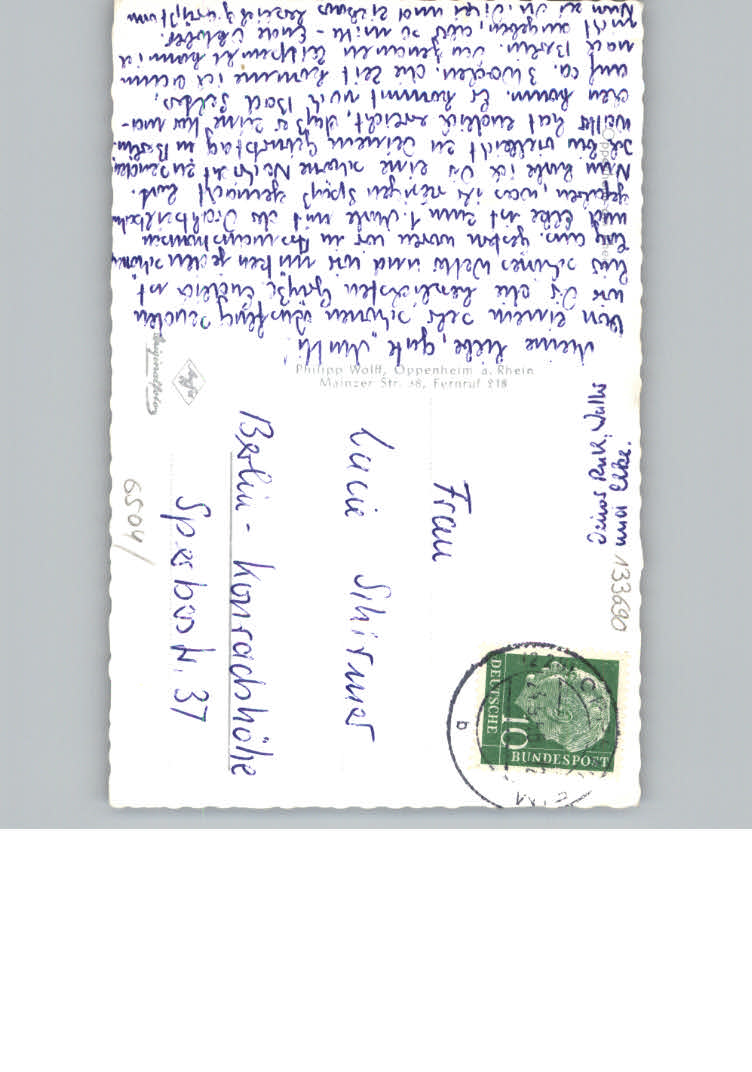 Meine liebe, gute Mutti!
Von einem sehr schönen Ausflug senden
wir Dir die herzlichsten Grüße. Endlich ist
uns schönes Wetter und wir nützen jeden schönen
Tag aus. Gestern waren wir in Assmannshausen
und Elke ist zum 1. Male mit der Drahtseilbahn
gefahren, was ihr riesigen Spaß gemacht hat.
Nun habe ich Dir eine schöne Nachricht zu senden,
ich bin vielleicht zu Deinem Geburtstag in Berlin.
Walter hat endlich erreicht, daß er eine Kur ma-
chen kann. Er kommt nach Bad
auf ca. 3 Wochen. Die Zeit komme ich dann
nach Berlin. Den genauen Zeitpunkt kann ich
nicht angeben, aber so mitte - Ende Oktober.
Nun sei und bleibe herzlich gegrüßt von
Deiner Ruth, Walter
und Elke.
Philipp Wolff, Oppenheim a. Rhein
Mainzer Str. 38, Fernruf 218
Agfa
Originalfoto
Oppenheim
Frau
Lucie Schirmer
Berlin - Konradshöhe
Sperberstr. 37
6504/
133690
DEUTSCHE
BUNDESPOST
10
b